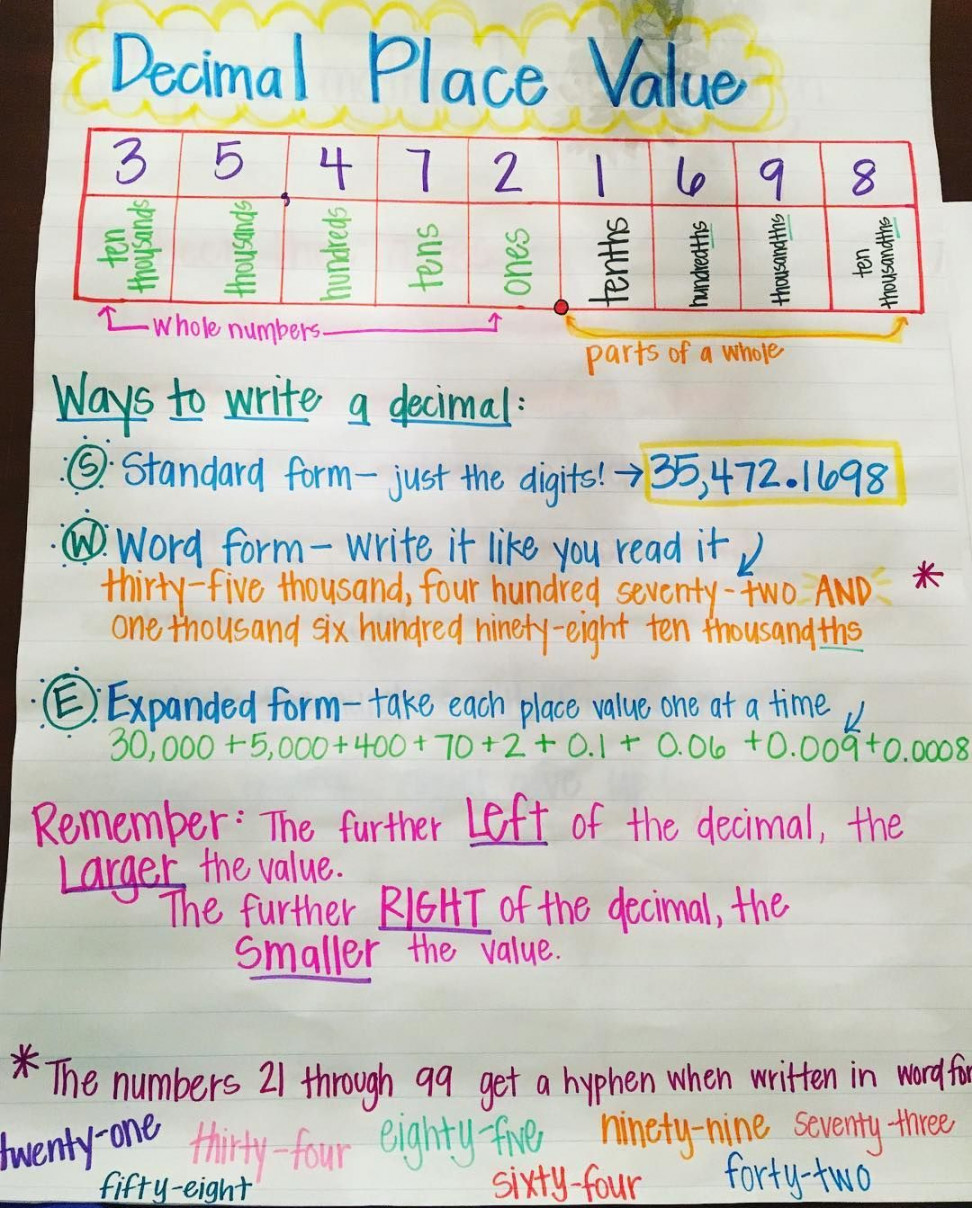 Decimal Place Value
3 5 , 4 7 2 . 1 6 9 8
ten thousands thousands hundreds tens ones tenths hundredths thousandths ten thousandths
whole numbers
parts of a whole
Ways to write a decimal:
S Standard form - just the digits! → 35,472.1698
W Word form - write it like you read it
thirty-five thousand, four hundred seventy-two AND *
one thousand six hundred ninety-eight ten thousandths
E Expanded form - take each place value one at a time
30,000 + 5,000 + 400 + 70 + 2 + 0.1 + 0.06 + 0.009 + 0.0008
Remember: The further Left of the decimal, the
Larger the value.
The further RIGHT of the decimal, the
Smaller the value.
* The numbers 21 through 99 get a hyphen when written in word for
twenty-one thirty-four eighty-five ninety-nine seventy-three
fifty-eight sixty-four forty-two